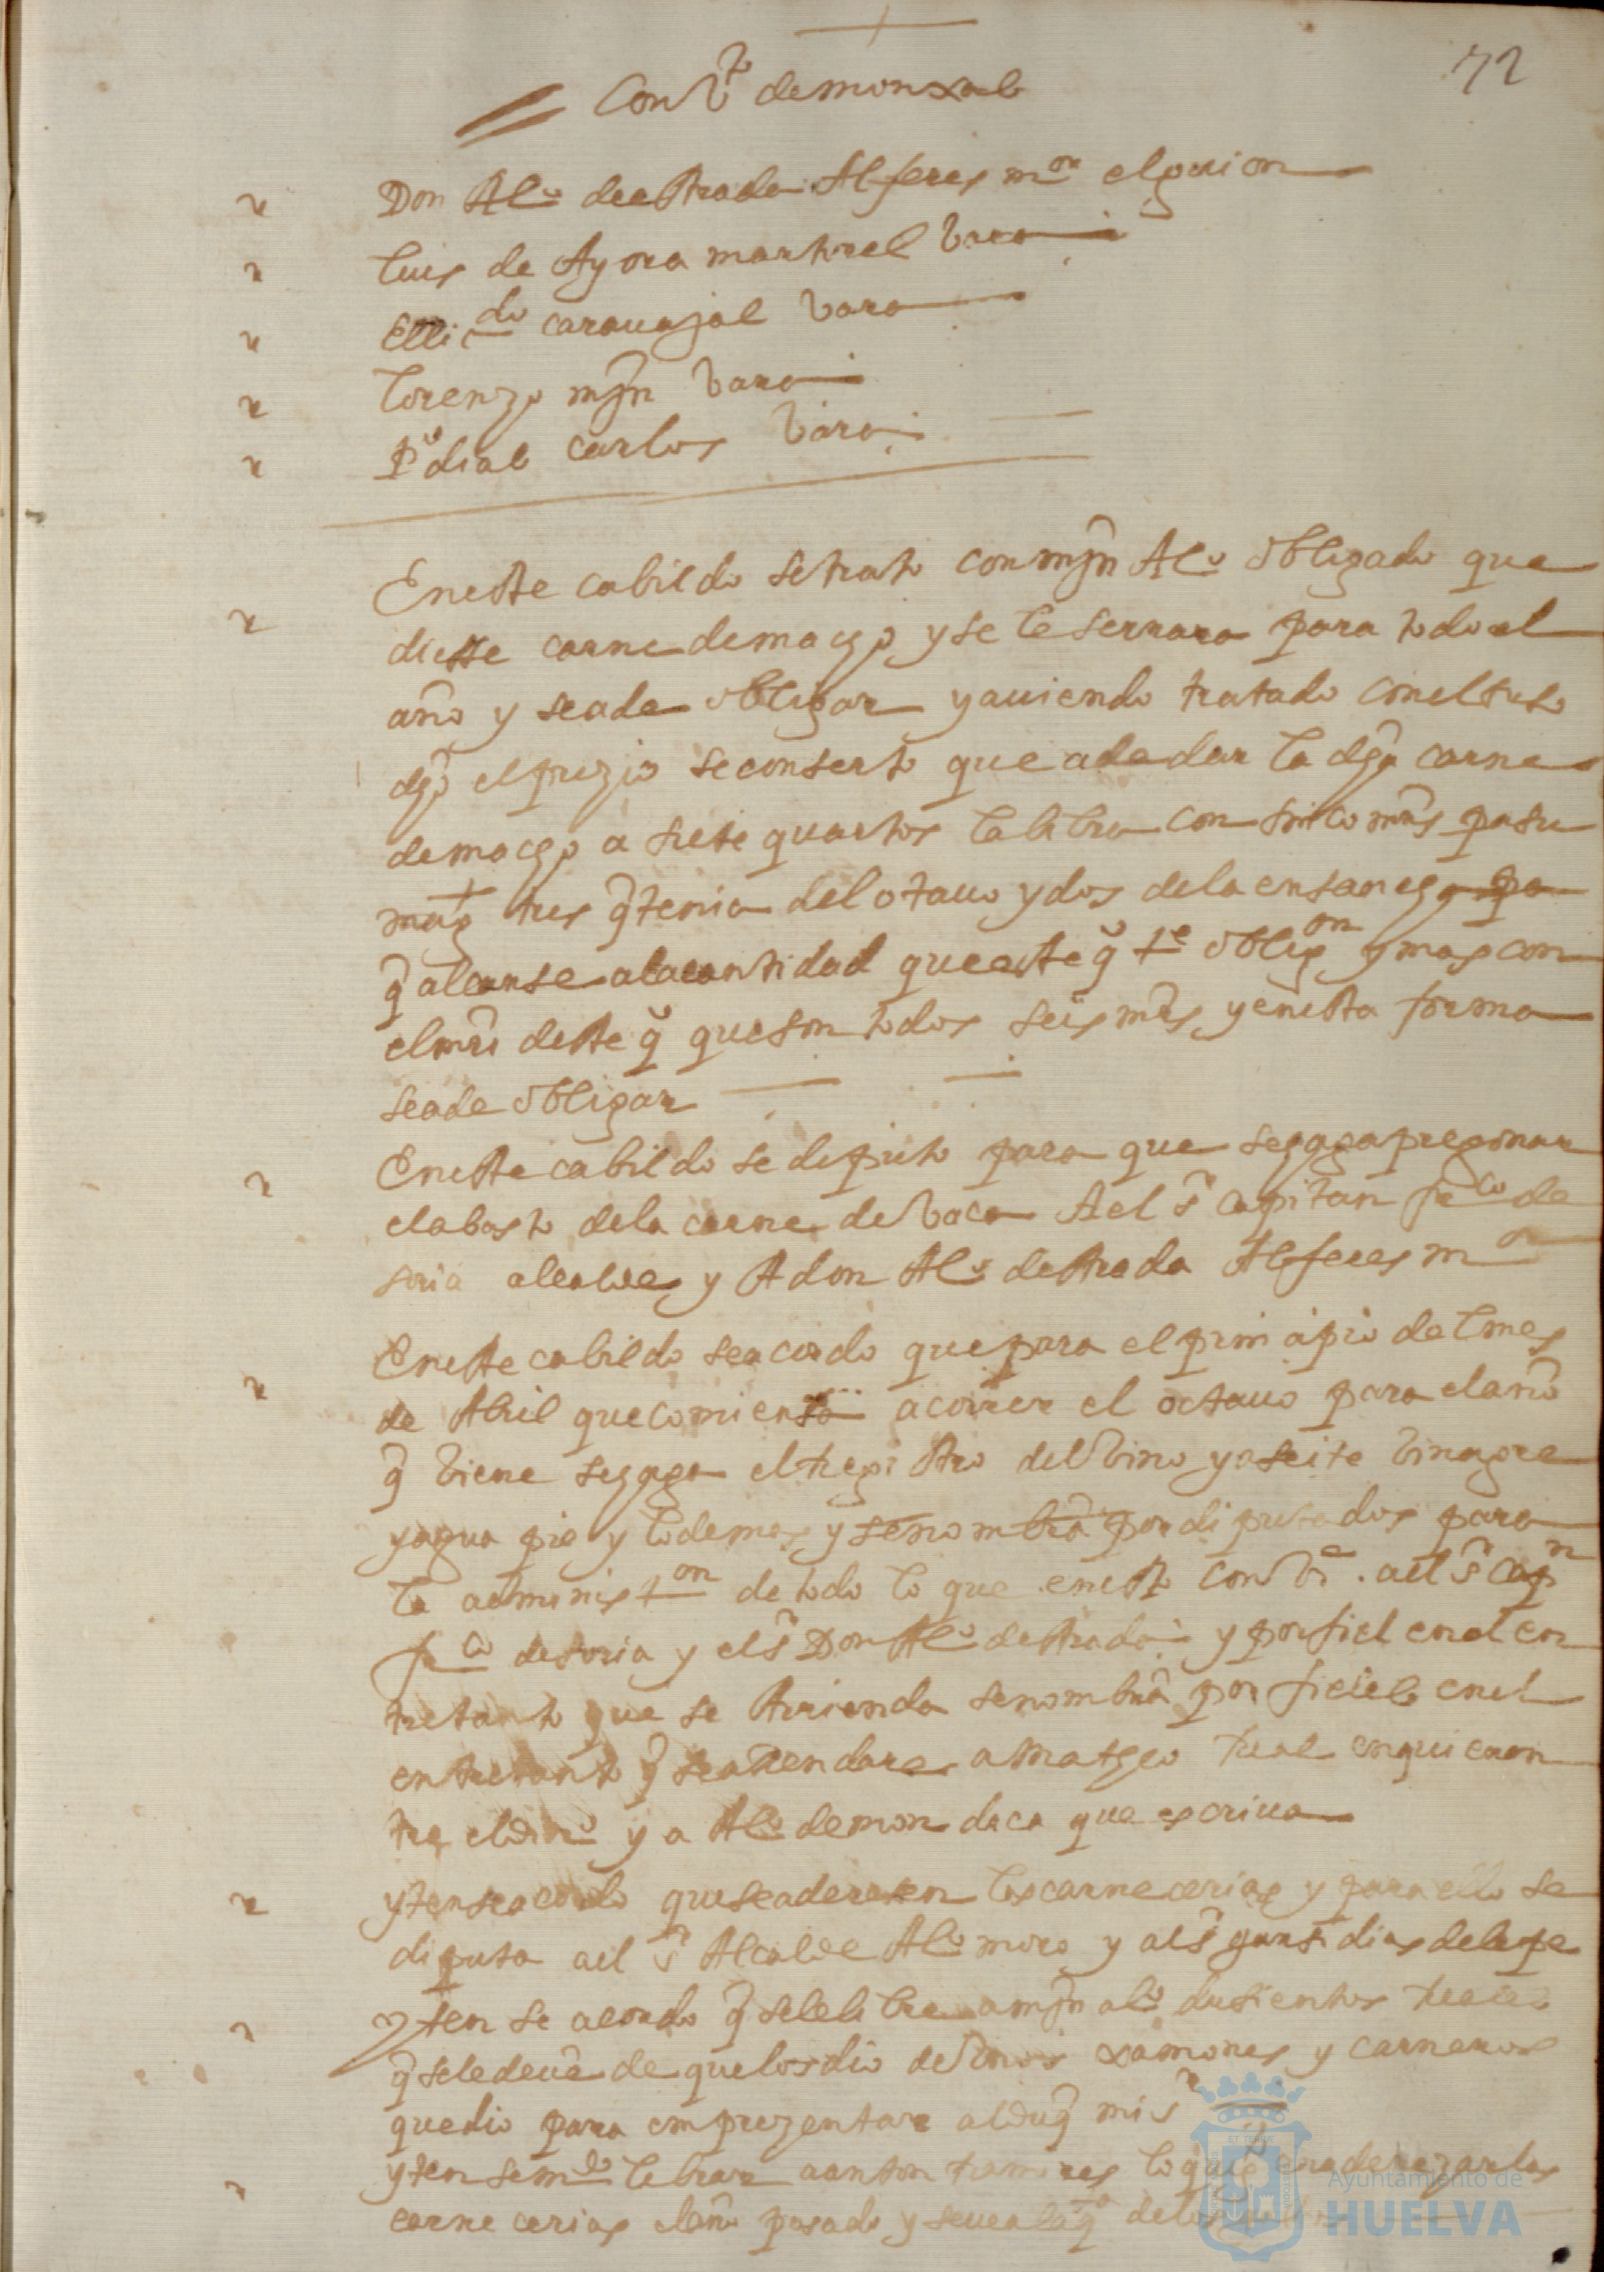 72
Conv.to de monxas
Don Al.o de estrada Alferez m.or el guion
luis de Ayora martorel vara
El li.do carauajal vara
lorenzo mrn vara
P.o dias carlos vara
En este cabildo se trato con mrn Al.o obligado que
diesse carne de macho y se le serrara para todo el
año y se a de obligar y auiendo tratado con el suso
dho el prezio se conserto que a de dar la dha carne
de macho a siete quartos la libra con sinco mrs pasu
mag tres q tenia del otauo y dos de la ensancha pa
q alcanse a la cantidad que este q te oblig.on y mas con
el mri deste q que son todos seis mrs y en esta forma
se a de obligar
En este cabildo se diputo para que se haga pregonar
el abasto de la carne de vaca A el s.r capitan fr.co de
soria alcalde y A don Al.o de estrada Alferes m.or
En este cabildo se acordo que para el prinsipio del mes
de Abril que comiensa a correr el octauo para el año
q viene se haga el rregistro del vino y aseite vinagre
y agua pie y lo demas y se nombra por diputados para
la administ.on de todo lo que en esto conv.e a el s.r cap.n
fr.co de soria y el s.r Don Al.o de estrada y por fiel en el en
tretanto que se Arrienda se nombra por fieles en el
entretanto q se arrendare a Matheo rual en quien en
tre el din.o y a Al.o de mondaca que escriua
yten se acordo que se aderesen las carnecerias y para ello se
diputa a el s.r Alcalde Al.o moro y al s.r juan dias de lepe
yten se acordo q se le libre a mrn al.o dusientos reales
q se le deue de que los dio de unos xamones y carneros
que dio para emprezentar al duq mi s.r
yten se m.do librar a anton ramires lo que en aderezar las
carnecerias el año pasado
Ayuntamiento de
HUELVA